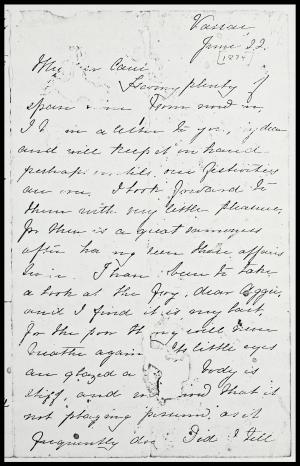 Vassar,
June 22.
[1874]
My dear Carrie
Having plenty of
spare time from now on,
I begin a letter to you, my dear
and will keep it on hand
perhaps until our festivities
are over. I look forward to
them with very little pleasure,
for there is a great sameness
after having seen these affairs
twice. I have been to take
a look at the frog, dear Aggie,
and I find it is my last,
for the poor thing will never
breathe again. Its little eyes
are glazed and body is
stiff, and we find that it
not playing possum, as it
frequently does. Did I tell